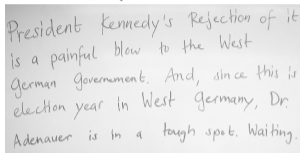 President Kennedy's Rejection of it
is a painful blow to the West
German Governement. And, since this is
election year in West Germany, Dr.
Adenauer is in a tough spot. Waiting.